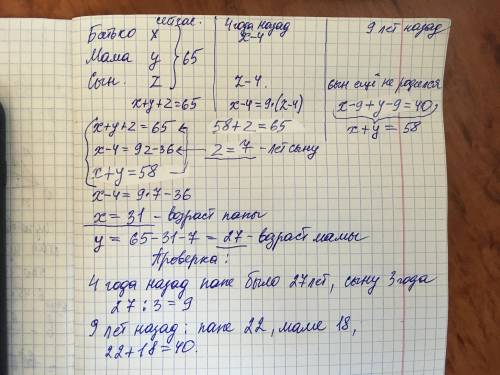 сейчас. 4 года назад 9 лет назад
Батько x x-4
Мама y } 65
Сын. z z-4. сын ещё не родился
x+y+z=65 x-4=9·(z-4) x-9+y-9=40,
x+y=58
{ x+y+z=65 58+z=65
x-4=9z-36 z=7 - лет сыну
x+y=58
x-4=9·7-36
x=31 - возраст папы
y = 65-31-7=27 - возраст мамы
Проверка:
4 года назад папе было 27 лет, сыну 3 года
27:3=9
9 лет назад: папе 22, маме 18,
22+18=40.